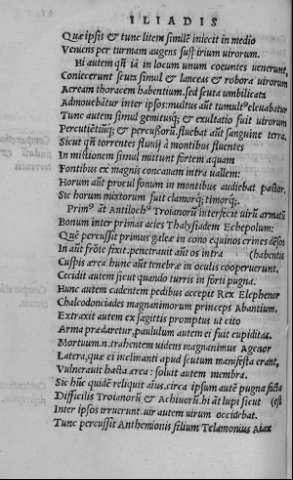 ILIADIS
Quæ ipsis & tunc litem similē iniecit in medio
Veniens per turmam augens susṕirium uirorum.
Hi autem qñ iā in locum unum coeuntes uenerunt,
Coniecerunt scuta simul & lanceas & robora uirorum
Aeream thoracem habentium. sed scuta umbilicata
Admouebātur inter ipsos: multus aūt tumultᵘˢ eleuabatur
Tunc autem simul gemitusq; & exultatio fuit uirorum
Percutiētiūq; & percussorū. fluebat aūt sanguine terra.
Sicut qñ torrentes fluuij à montibus fluentes
In mistionem simul mittunt fortem aquam
Fontibus ex magnis concauam intra uallem:
Horum aūt procul sonum in montibus audiebat pastor,
Sic horum mixtorum fuit clamorq; timorq;.
Primᵘˢ āt Antilochᵘˢ Troianorū interfecit uirū armatū
Bonum inter primas acies Thalysiadem Echepolum:
Quē percussit primus galeæ in cono equinos crines dēsos
In aūt frōte fixit. penetrauit aūt os intra (habentis
Cuspis ærea. hunc aūt tenebræ in oculis cooperuerunt.
Cecidit autem sicut quando turris in forti pugna.
Hunc autem cadentem pedibus accepit Rex Elephenor
Chalcodonciades magnanimorum princeps Abantium.
Extraxit autem ex sagittis promptus ut cito
Arma prædaretur, paululum autem ei fuit cupiditas.
Mortuum .n. trahentem uidens magnanimus Agenor
Latera, quæ ei inclinanti apud scutum manifesta erant,
Vulnerauit hasta ærea: soluit autem membra.
Sic hūc quidē reliquit aīus. circa ipsum autē pugna facta
Difficilis Troianorū & Achiuorū. hi āt lupi sicut (est
Inter ipsos irruerunt. uir autem uirum occidebat.
Tunc percussit Anthemionis filium Telamonius Aiax